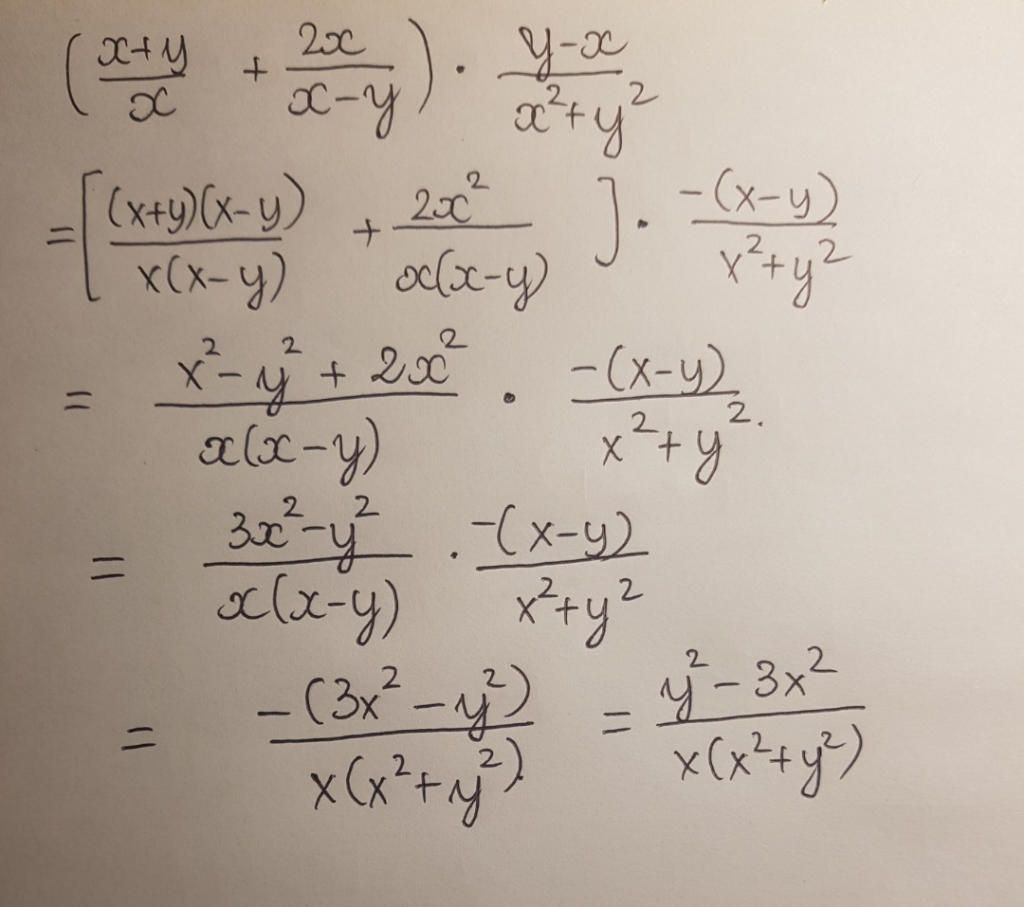 ((x+y)/x + 2x/(x-y)) · (y-x)/(x²+y²)
= [(x+y)(x-y)/x(x-y) + 2x²/x(x-y)] · -(x-y)/(x²+y²)
= (x²-y²+2x²)/x(x-y) · -(x-y)/(x²+y²).
= (3x²-y²)/x(x-y) · -(x-y)/(x²+y²)
= -(3x²-y²)/x(x²+y²) = (y²-3x²)/x(x²+y²)